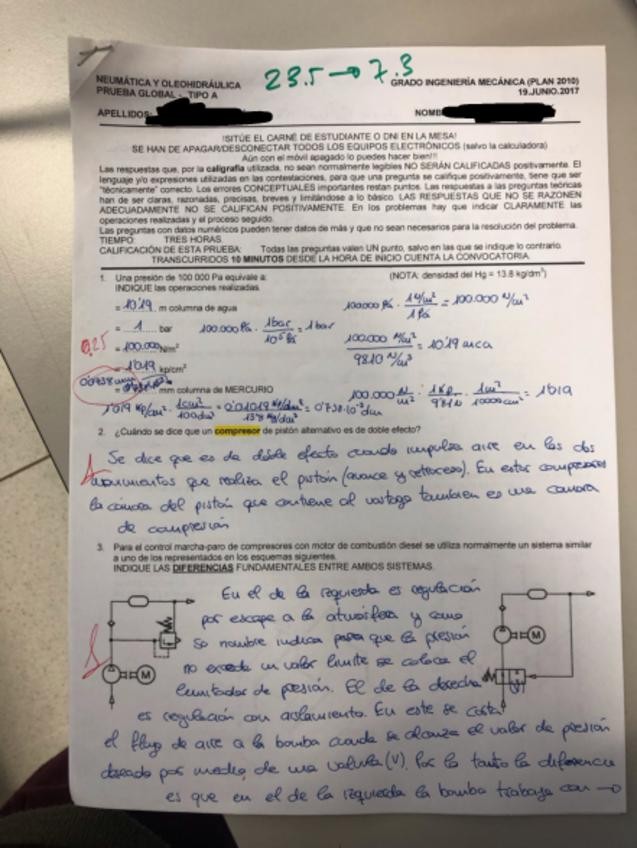 23.5 → 7.3
NEUMÁTICA Y OLEOHIDRÁULICA
GRADO INGENIERÍA MECÁNICA (PLAN 2010)
PRUEBA GLOBAL - TIPO A
19.JUNIO.2017
APELLIDOS:
NOMB
!SITÚE EL CARNÉ DE ESTUDIANTE O DNI EN LA MESA!
SE HAN DE APAGAR/DESCONECTAR TODOS LOS EQUIPOS ELECTRÓNICOS (salvo la calculadora)
Aún con el móvil apagado lo puedes hacer bien!!!
Las respuestas que, por la caligrafía utilizada, no sean normalmente legibles NO SERÁN CALIFICADAS positivamente. El
lenguaje y/o expresiones utilizadas en las contestaciones, para que una pregunta se califique positivamente, tiene que ser
"técnicamente" correcto. Los errores CONCEPTUALES importantes restan puntos. Las respuestas a las preguntas teóricas
han de ser claras, razonadas, precisas, breves y limitándose a lo básico. LAS RESPUESTAS QUE NO SE RAZONEN
ADECUADAMENTE NO SE CALIFICAN POSITIVAMENTE. En los problemas hay que indicar CLARAMENTE las
operaciones realizadas y el proceso seguido.
Las preguntas con datos numéricos pueden tener datos de más y que no sean necesarios para la resolución del problema.
TIEMPO: TRES HORAS.
CALIFICACIÓN DE ESTA PRUEBA: Todas las preguntas valen UN punto, salvo en las que se indique lo contrario.
TRANSCURRIDOS 10 MINUTOS DESDE LA HORA DE INICIO CUENTA LA CONVOCATORIA.
1. Una presión de 100 000 Pa equivale a: (NOTA: densidad del Hg = 13.8 kg/dm³)
INDIQUE las operaciones realizadas
= 10'19 m columna de agua
100.000 Pa · 1 N/m² / 1 Pa = 100.000 N/m²
= 1 bar
100.000 Pa · 1 bar / 10⁵ Pa = 1 bar
0,25
= 100.000 N/m²
100.000 N/m² / 9810 N/m³ = 10'19 mca
= 1'019 kp/cm²
0'0738 mm
= mm columna de MERCURIO
100.000 N/m² · 1 kp / 9'81 N · 1 m² / 10000 cm² = 1'019
1'019 kp/cm² · 1 cm² / 100 dm² = 0'01019 kp/dm² / 13'8 kg/dm³ = 0'738·10⁻³ dm
2. ¿Cuándo se dice que un compresor de pistón alternativo es de doble efecto?
Se dice que es de doble efecto cuando impulsa aire en los dos
movimientos que realiza el pistón (avance y retroceso). En estos compresores
la cámara del pistón que contiene al vastago tambien es una camara
de compresión
3. Para el control marcha-paro de compresores con motor de combustión diesel se utiliza normalmente un sistema similar
a uno de los representados en los esquemas siguientes.
INDIQUE LAS DIFERENCIAS FUNDAMENTALES ENTRE AMBOS SISTEMAS.
En el de la izquierda es regulación
por escape a la atmósfera y como
su nombre indica para que la presión
no exceda un valor limite se coloca el
limitador de presión. El de la derecha
es regulación con aislamiento. En este se corta
el flujo de aire a la bomba cuando se alcanza el valor de presión
deseado por medio, de una valvula (V). Por lo tanto la diferencia
es que en el de la izquierda la bomba trabaja con →
M
M